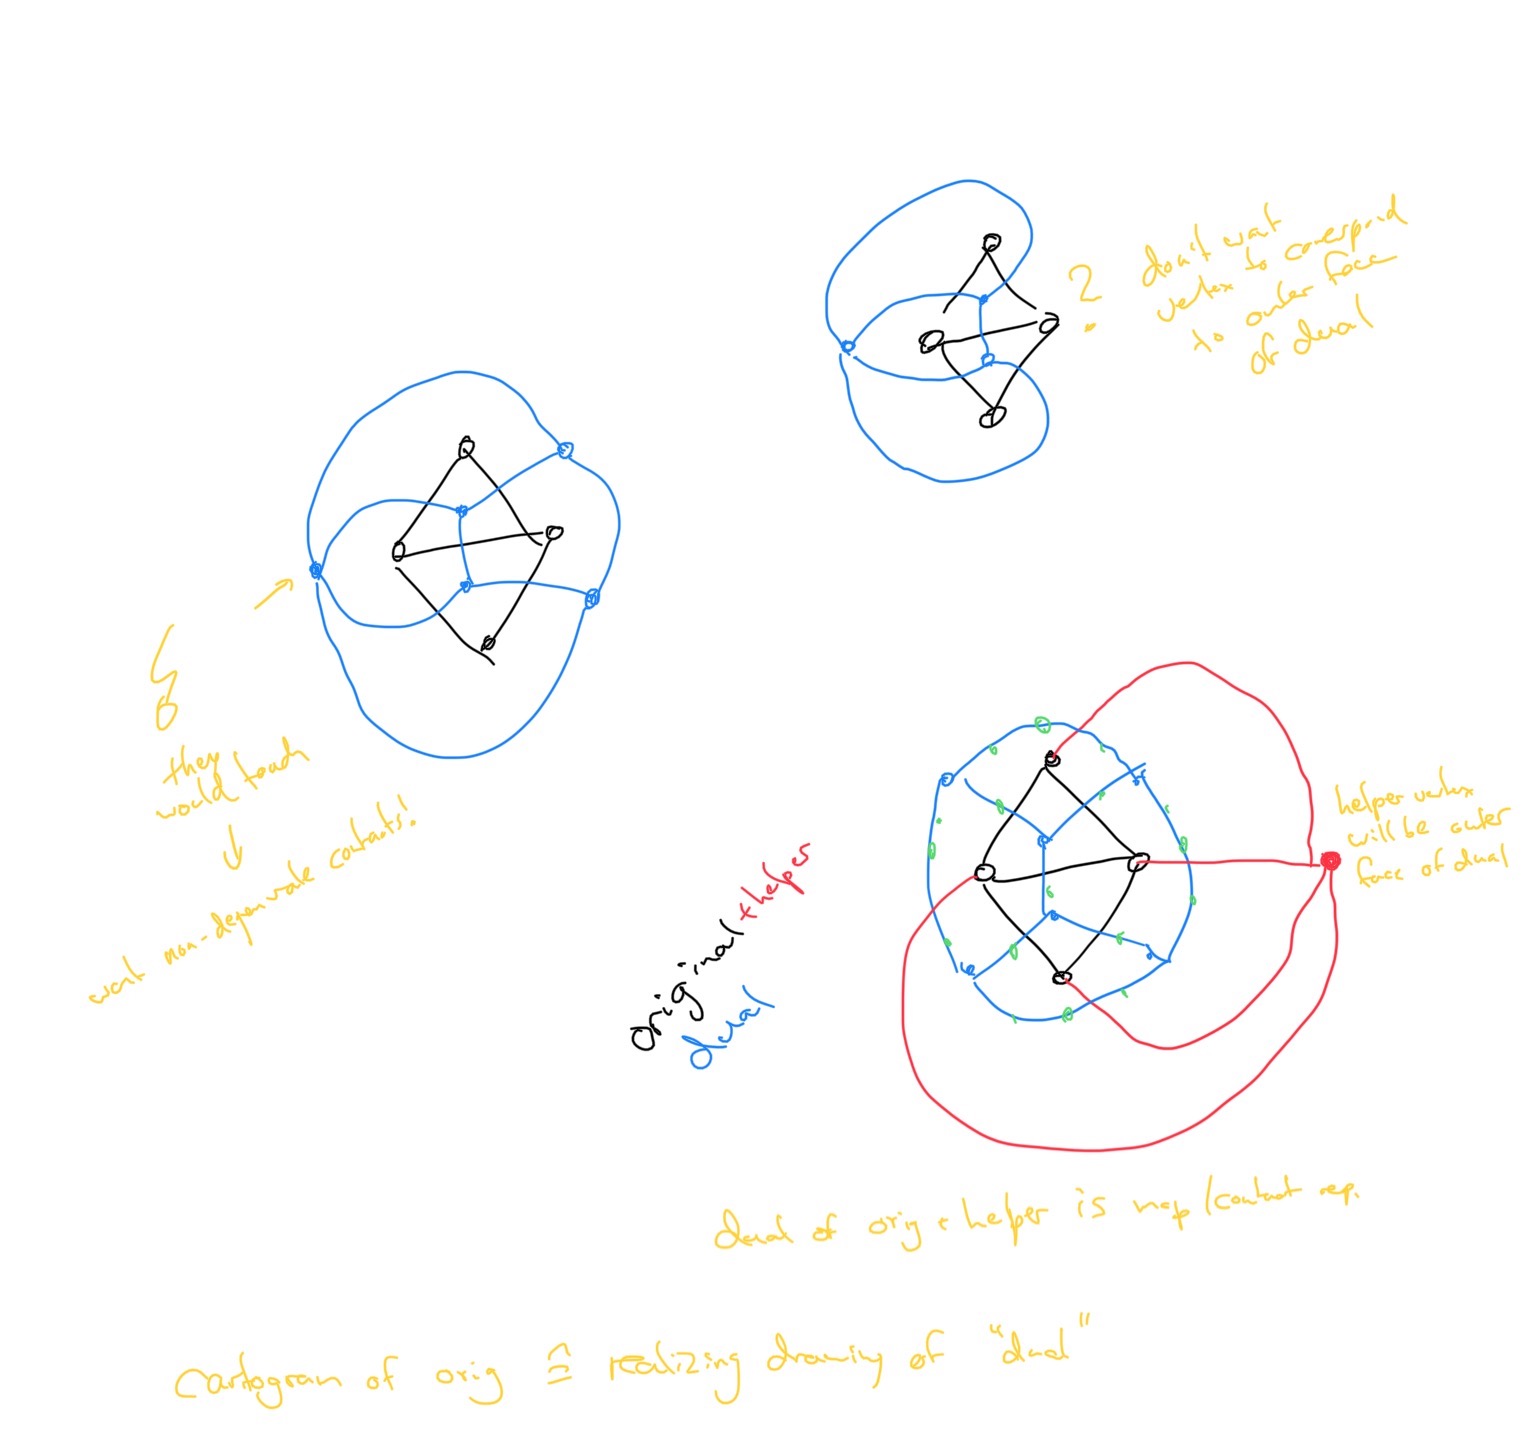 ?
don't want
vertex to correspond
to outer face
of dual
they
would touch
want non-degenerate contacts!
original + helper
dual
helper vertex
will be outer
face of dual
dual of orig + helper is map/contact rep.
Cartogram of orig ≙ realizing drawing of "dual"